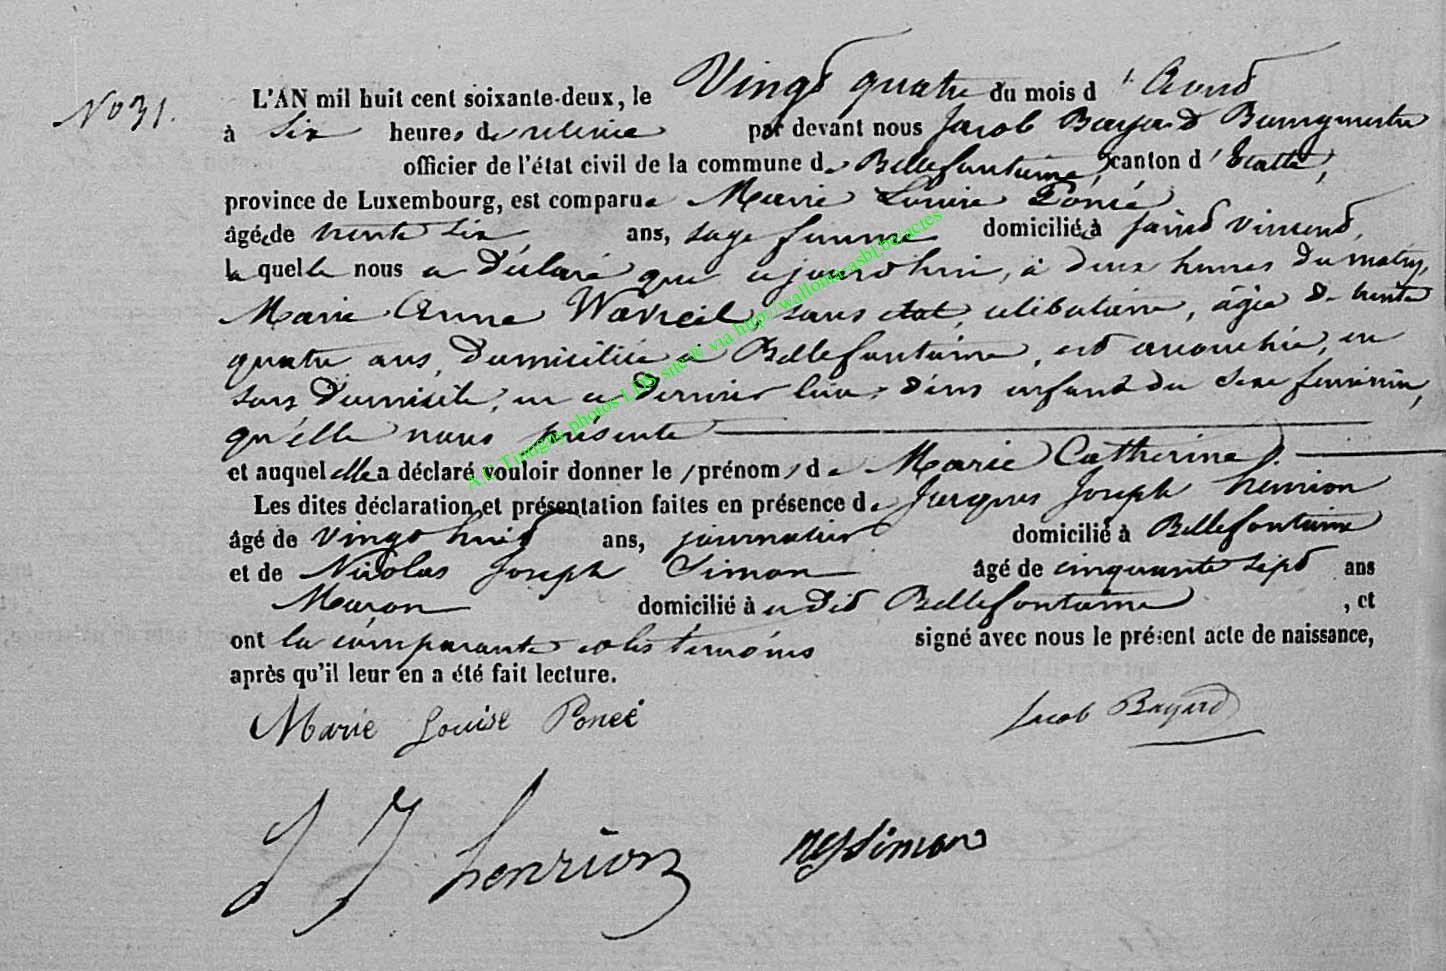 No 31.
L'AN mil huit cent soixante-deux, le Vingt quatre du mois d'Aout
à six heures de relevée par devant nous Jacob Bayard Bourgmestre
officier de l'état civil de la commune de Bellefontaine, canton d'Etalle,
province de Luxembourg, est comparue Marie Louise Poncé
âgée de trente six ans, sage femme domiciliée à saint Vincent,
laquelle nous a déclaré que aujourdhui, à deux heures du matin,
Marie Anne Wavreil, sans état, celibataire, âgée de trente
quatre ans, domiciliée à Bellefontaine, est accouchée, en
son domicile, en ce dernier lieu, d'un enfant du sexe feminin,
qu'elle nous présente
et auquel elle a déclaré vouloir donner le (prénom) de Marie Catherine).
Les dites déclaration et présentation faites en présence de Jacques Joseph henrion
âgé de vingt huit ans, journalier domicilié à Bellefontaine
et de Nicolas Joseph Simon âgé de cinquante sept ans
Maçon domicilié à au dit Bellefontaine, et
ont la comparante et les temoins signé avec nous le présent acte de naissance,
après qu'il leur en a été fait lecture.
Marie Louise Poncé Jacob Bayard
J J henrion Simon
A.C. Tintigny photos LDS site® via http://wallonica.asbl.be/actes